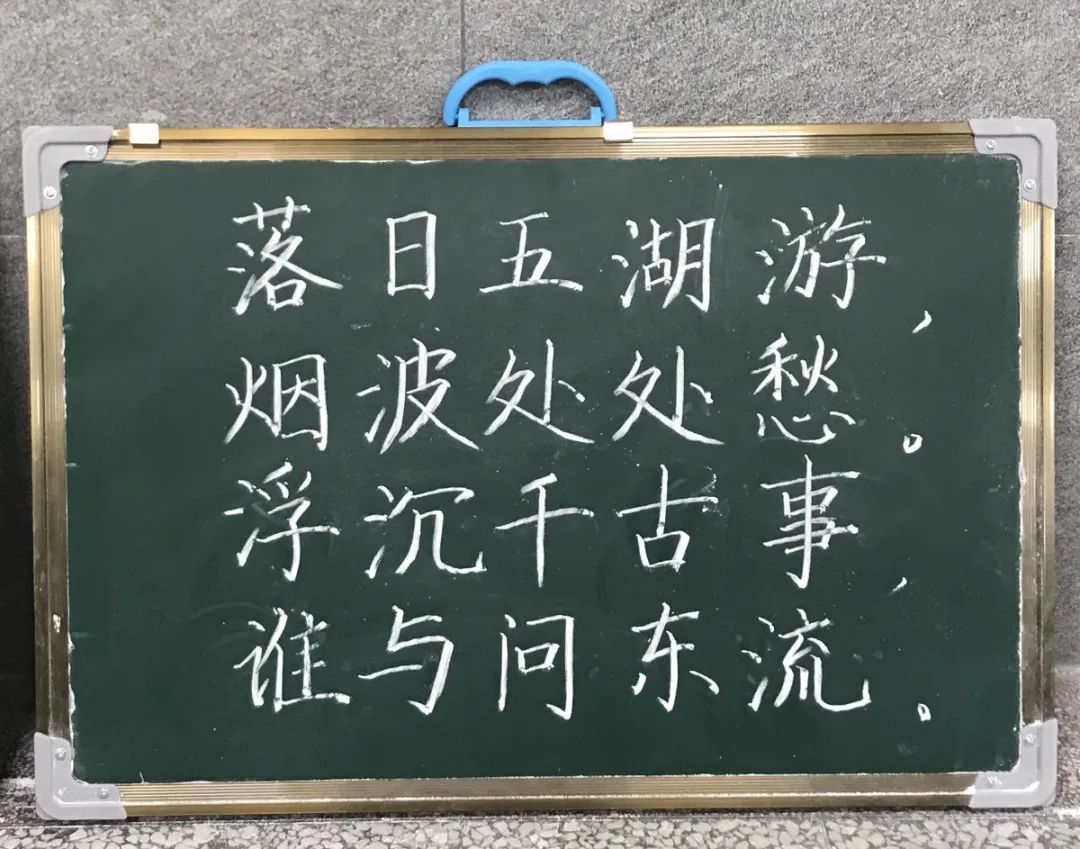 落日五湖游，
烟波处处愁。
浮沉千古事，
谁与问东流。